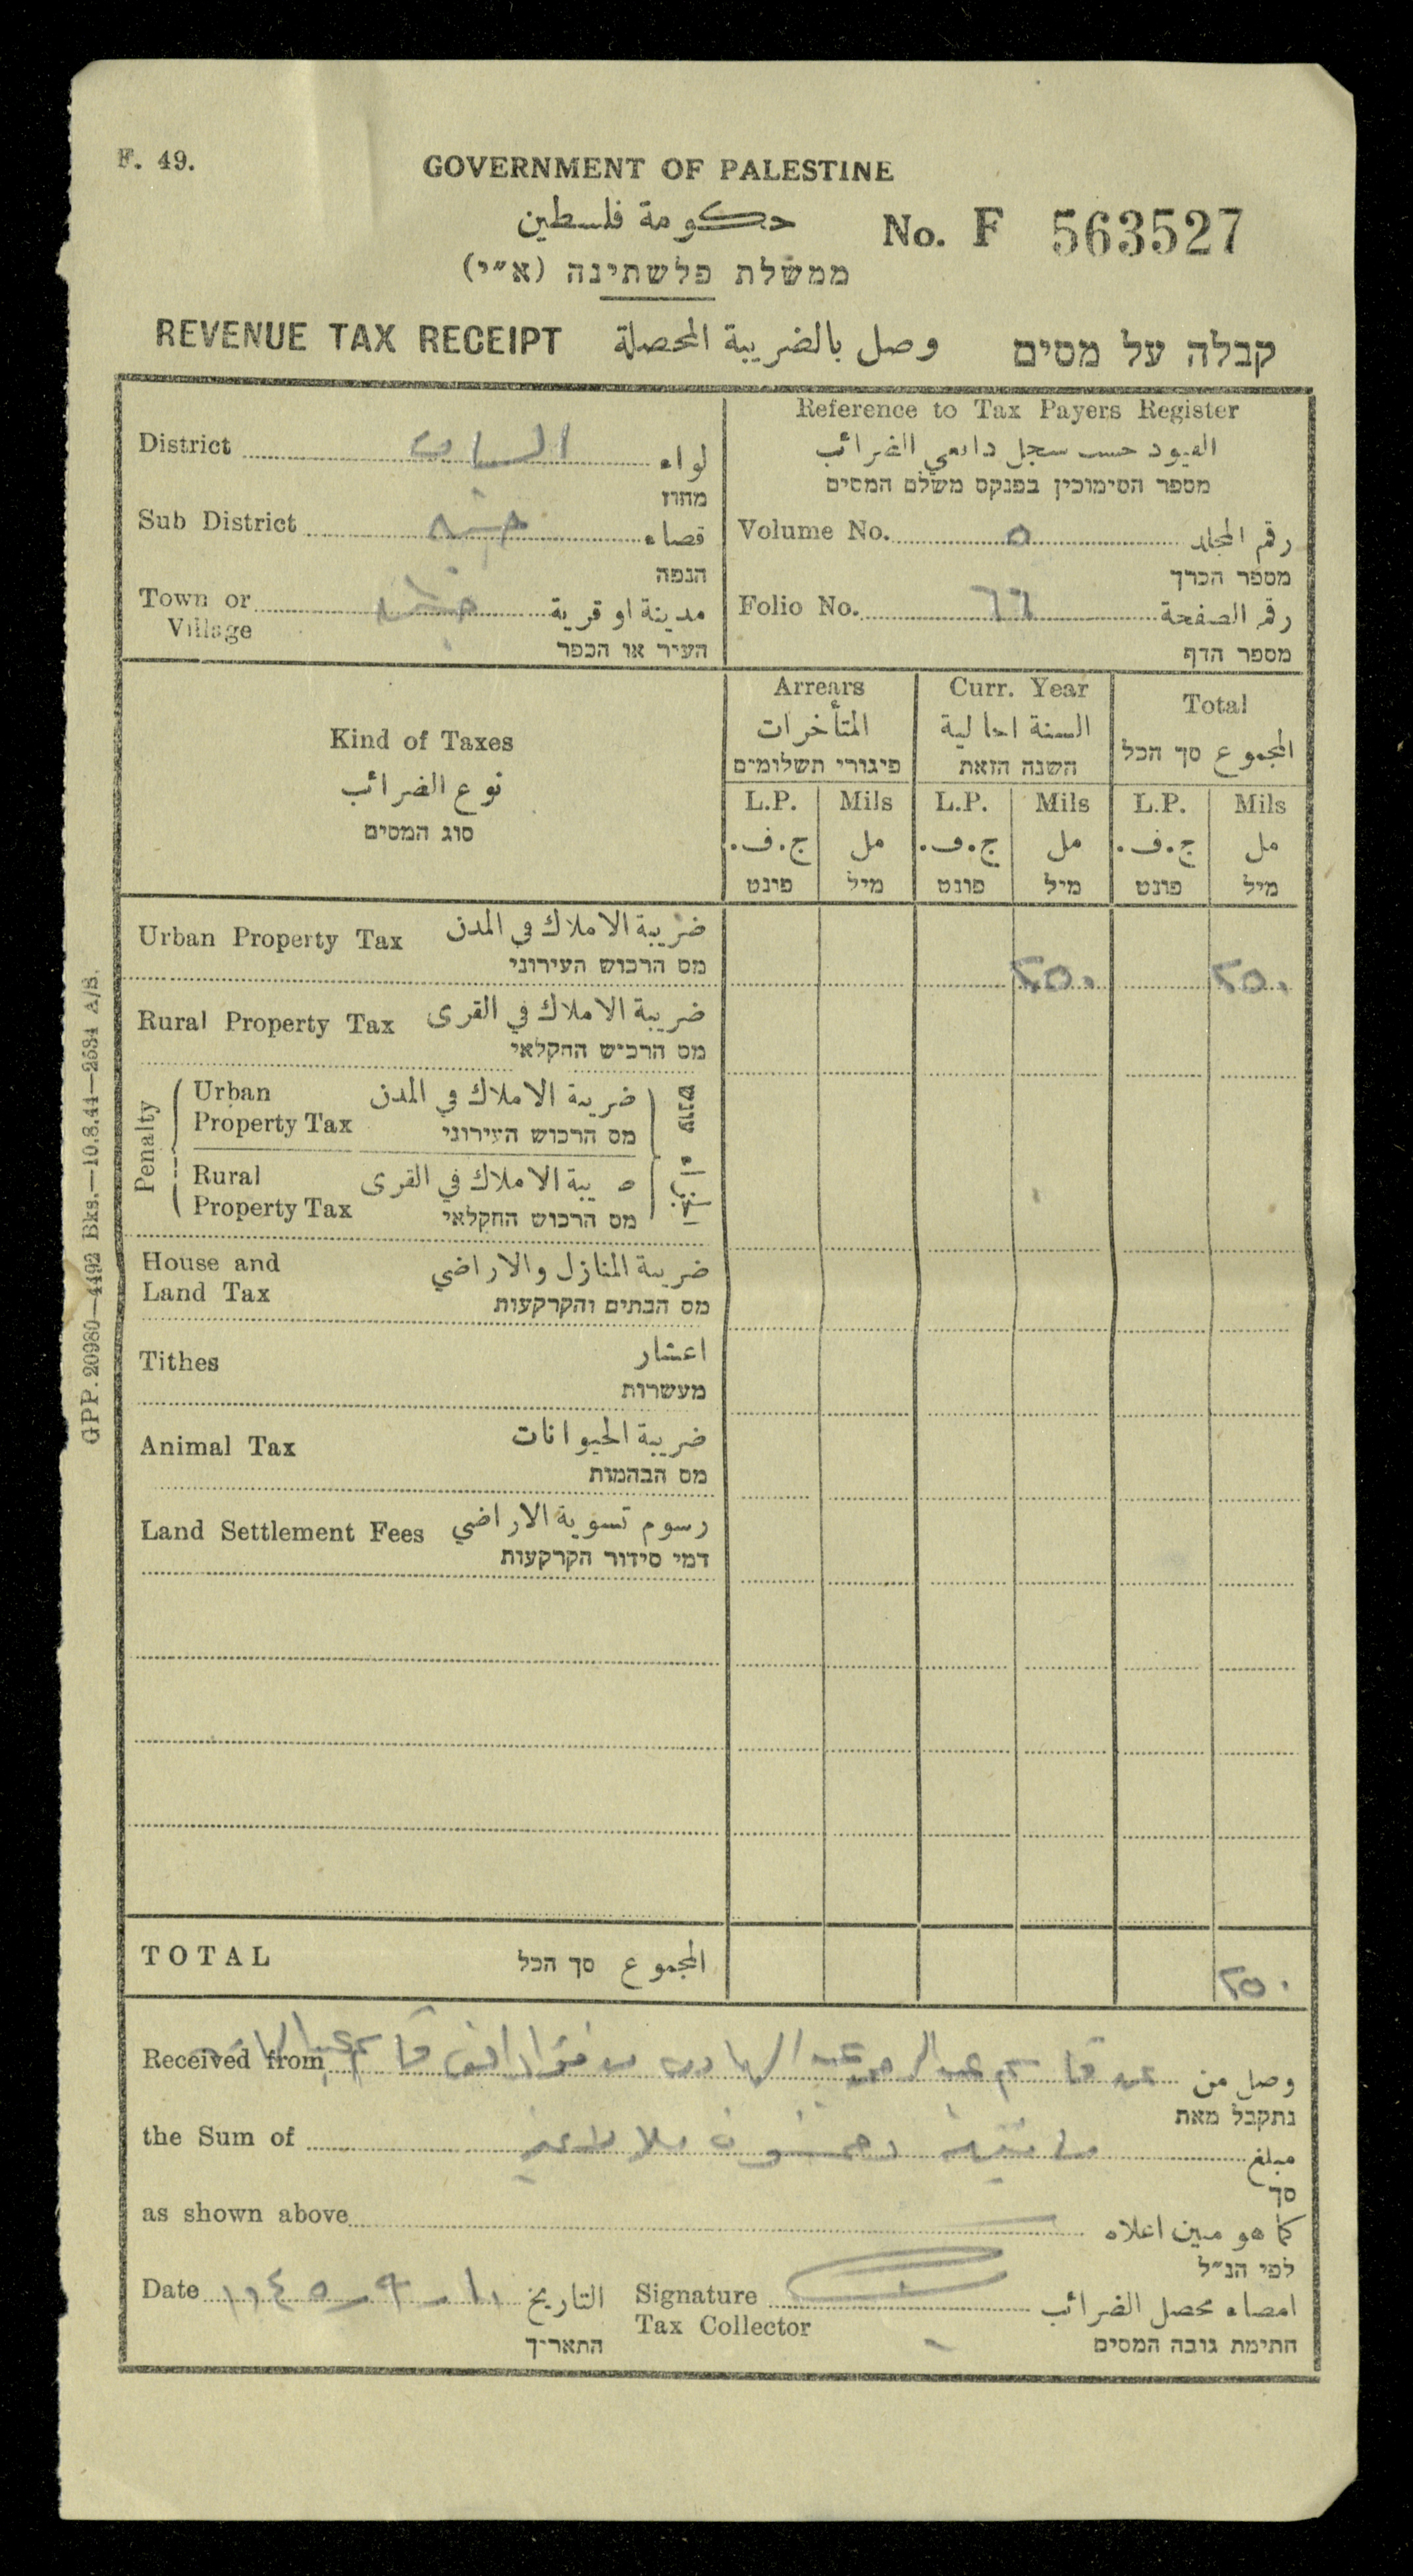 F. 49.
GOVERNMENT OF PALESTINE
حكومة فلسطين
No. F 563527
ממשלת פלשתינה (א״י)
REVENUE TAX RECEIPT وصل بالضريبة المحصلة קבלה על מסים
District السامرة لواء
מחוז
Sub District جنين قضاء
הנפה
Town or Village جنين مدينة او قرية
העיר או הכפר
Reference to Tax Payers Register
القيود حسب سجل دافعي الضرائب
מספר הסימוכין בפנקס משלם המסים
Volume No. ٥ رقم المجلد
מספר הכרך
Folio No. ٦٦ رقم الصفحة
מספר הדף
Kind of Taxes
نوع الضرائب
סוג המסים
Arrears
المتأخرات
פיגורי תשלומים
Curr. Year
السنة الحالية
השנה הזאת
Total
المجموع סך הכל
L.P. Mils L.P. Mils L.P. Mils
ج.ف. مل ج.ف. مل ج.ف. مل
פונט מיל פונט מיל פונט מיל
Urban Property Tax ضريبة الاملاك في المدن
מס הרכוש העירוני
٢٥٠ ٢٥٠
Rural Property Tax ضريبة الاملاك في القرى
מס הרכוש החקלאי
Penalty
Urban Property Tax ضريبة الاملاك في المدن
מס הרכוש העירוני
עונש
Rural Property Tax ضريبة الاملاك في القرى
מס הרכוש החקלאי
House and Land Tax ضريبة المنازل والاراضي
מס הבתים והקרקעות
Tithes اعشار
מעשרות
Animal Tax ضريبة الحيوانات
מס הבהמות
Land Settlement Fees رسوم تسوية الاراضي
דמי סידור הקרקעות
TOTAL المجموع סך הכל
٢٥٠
Received from قاسم عبد الهادي وصل من
נתקבל מאת
the Sum of مائتين وخمسون ملا مبلغ
סך
as shown above كما هو مبين اعلاه
לפי הנ״ל
Date ١٠-٩-١٩٤٥ التاريخ
התאריך
Signature Tax Collector امضاء محصل الضرائب
חתימת גובה המסים
GPP. 20980—4492 Bks.—10.8.44—2534 A/B.